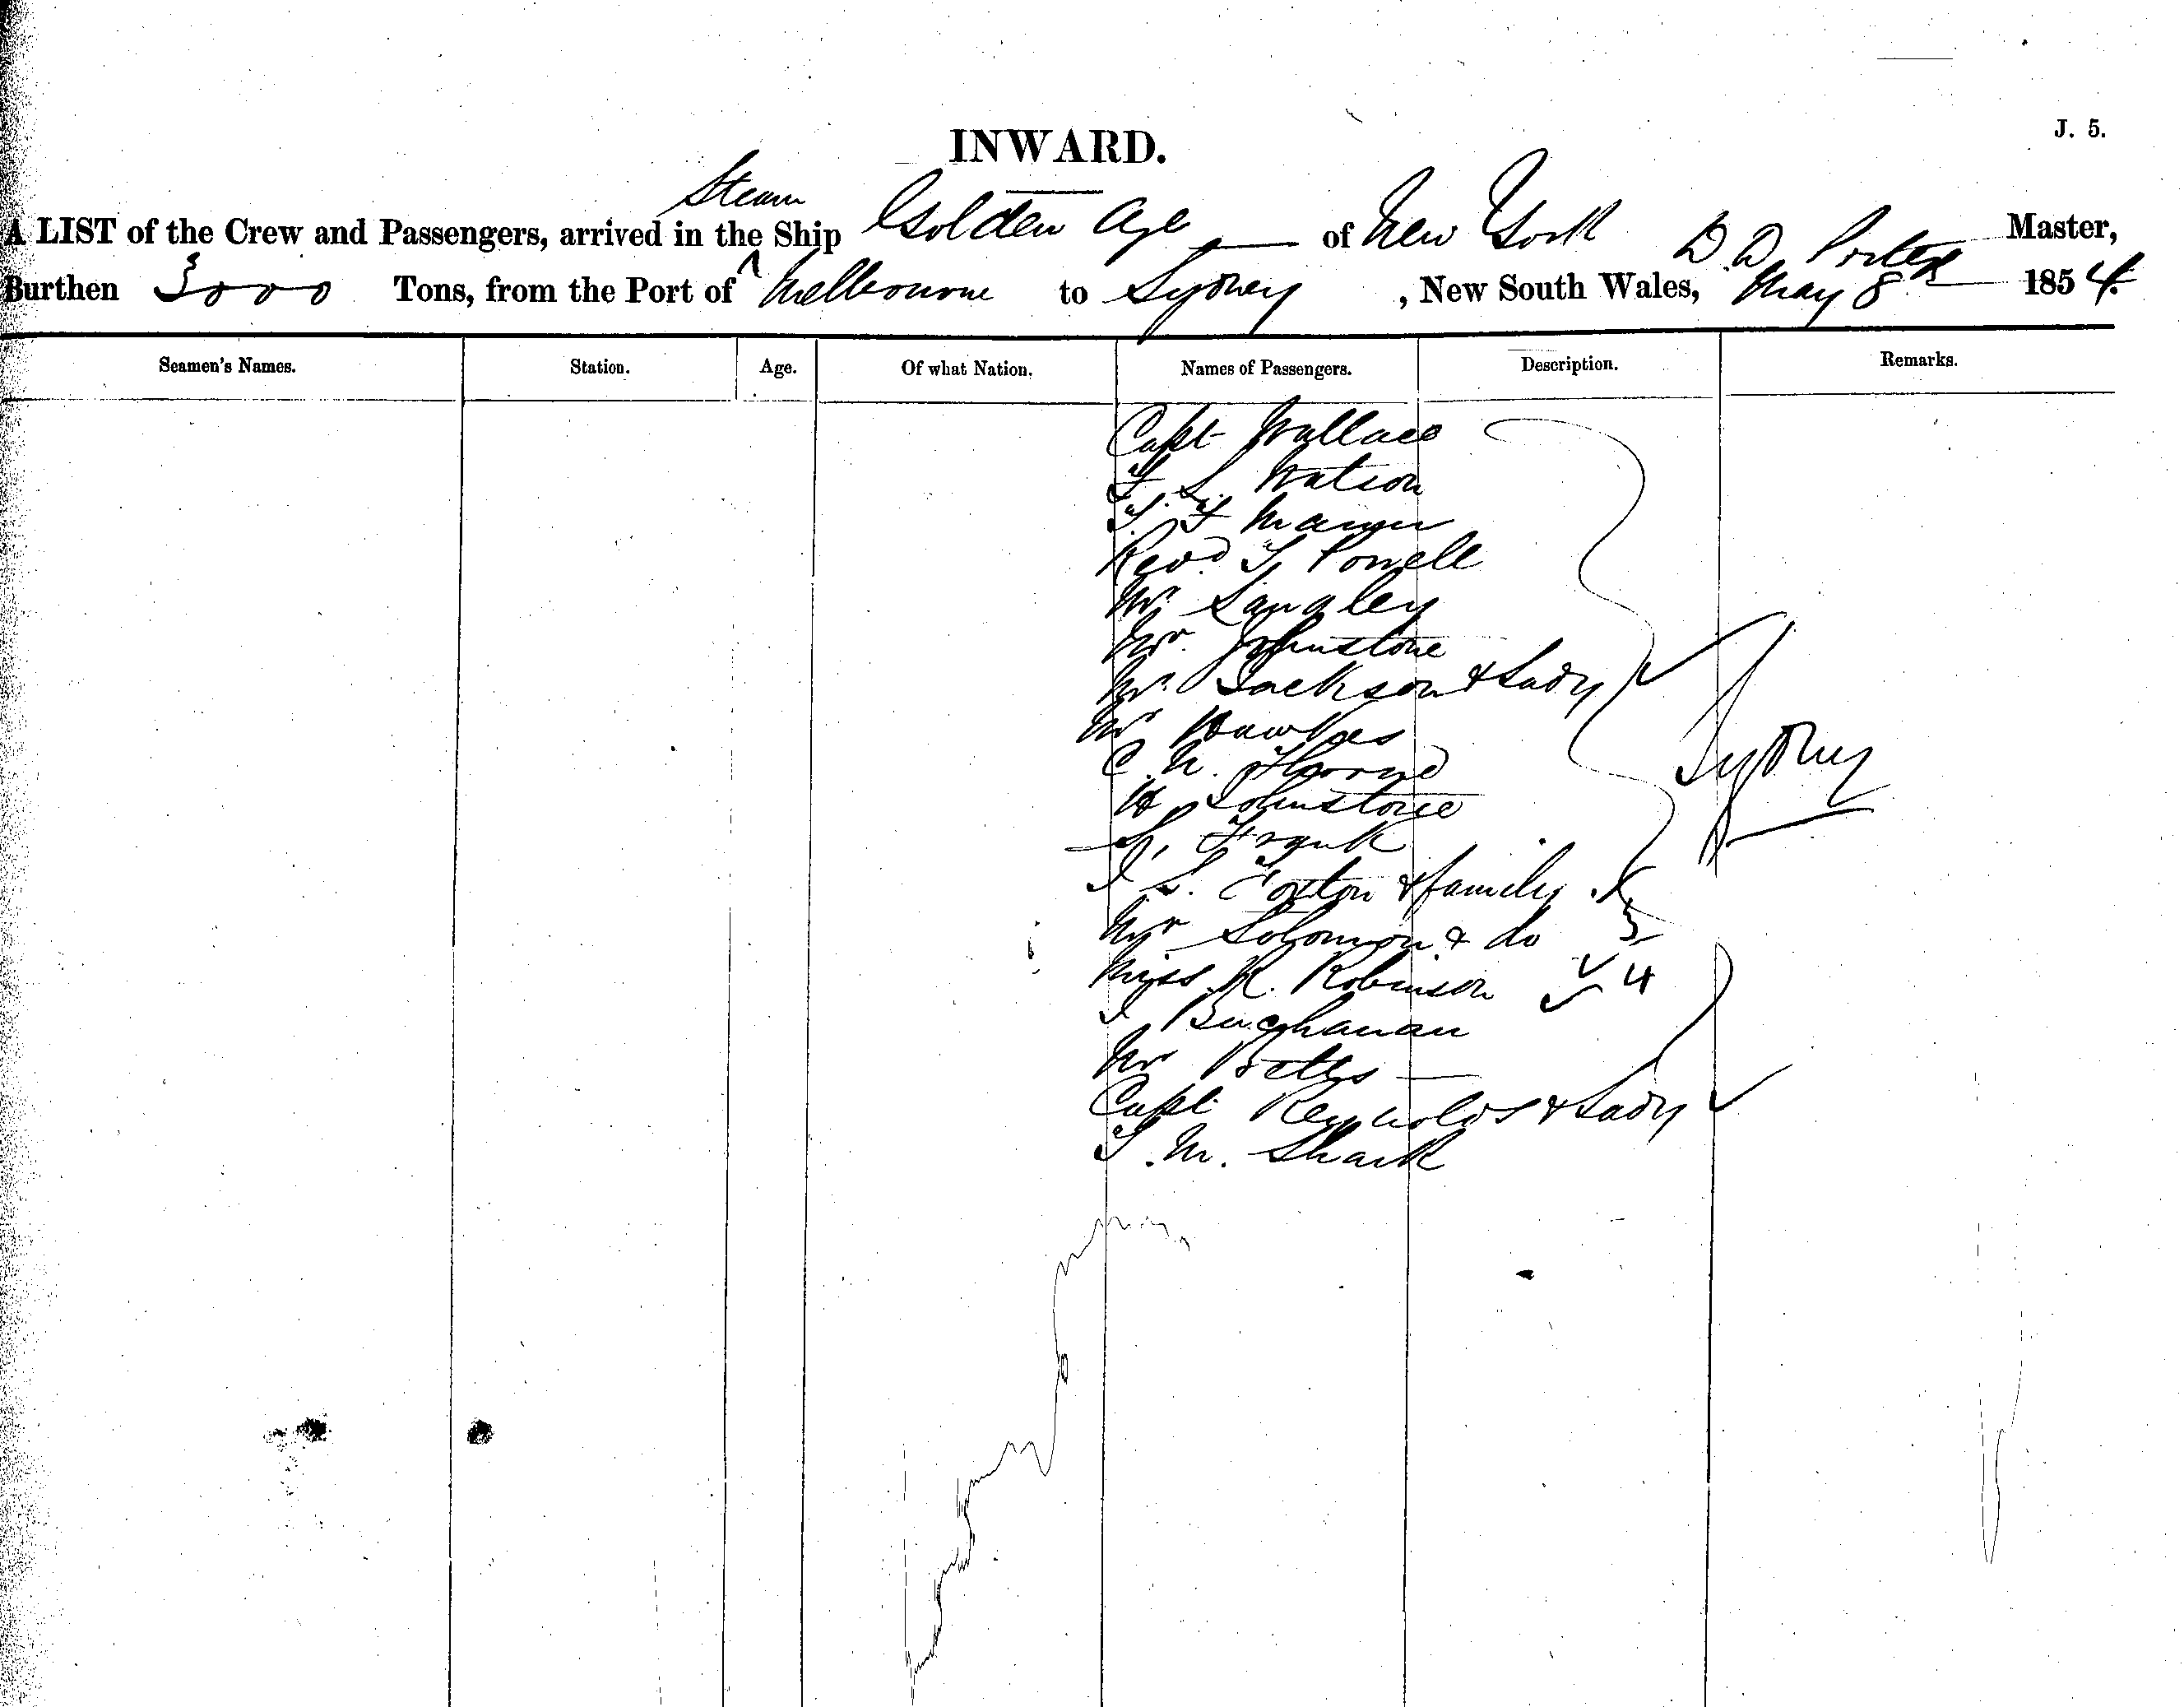 J. 5.
INWARD.
A LIST of the Crew and Passengers, arrived in the Steam Ship Golden Age of New York D. D. Porter Master,
Burthen 3000 Tons, from the Port of Melbourne to Sydney, New South Wales, May 8 1854
Seamen's Names. Station. Age. Of what Nation. Names of Passengers. Description. Remarks.
Capt Wallace
Watson
Revd. T. Powell
Mr Langley
Mr. Johnstone
Mr. Jackson & Lady
Mr Hawkes
Sydney
C. N. Thorne
H Johnstone
Frank
& family 3
Mr Solomon & do 4
Miss R. Robinson
I Buchanan
Mr Betts
Capt Reynolds & Lady
T. M. Shark